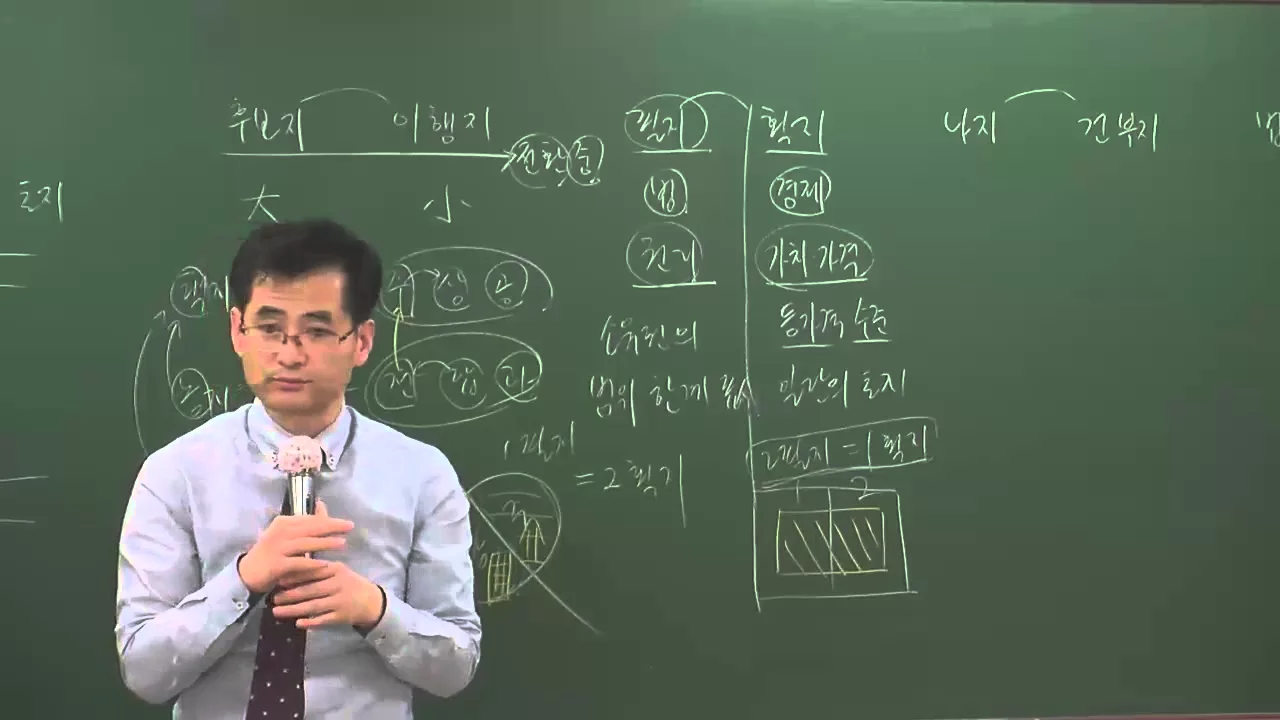 후보지 이행지
전환 중
大 小
토지
택지
농지
주 상 공
전 답 과
필지 획지
법 경제
권리 가치 가격
소유권의 동가격 수준
범위 한계 표시 일단의 토지
1필지
= 2획지
2필지 = 1획지
1 2
나지 건부지
법